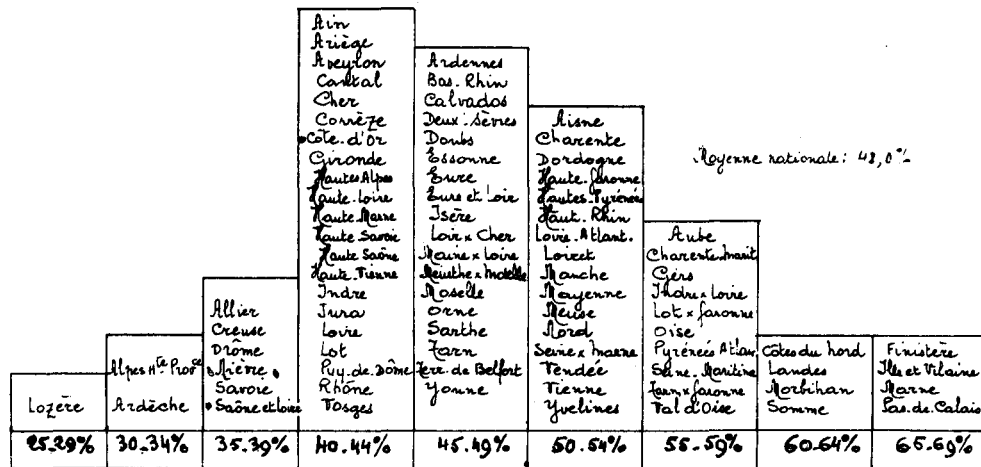 Lozère
25-29%
Alpes Hte Provce
Ardèche
30-34%
Allier
Creuse
Drôme
Nièvre
Savoie
Saône et Loire
35-39%
Ain
Ariège
Aveyron
Cantal
Cher
Corrèze
Côte-d'Or
Gironde
Hautes Alpes
Haute-Loire
Haute-Marne
Haute Savoie
Haute Saône
Haute-Vienne
Indre
Jura
Loire
Lot
Puy-de-Dôme
Rhône
Vosges
40-44%
Ardennes
Bas-Rhin
Calvados
Deux-Sèvres
Doubs
Essonne
Eure
Eure et Loir
Isère
Loir x Cher
Maine x Loire
Meurthe x Moselle
Moselle
Orne
Sarthe
Tarn
Terr. de Belfort
Yonne
45-49%
Aisne
Charente
Dordogne
Haute-Garonne
Hautes-Pyrénées
Haut-Rhin
Loire-Atlant.
Loiret
Manche
Mayenne
Meuse
Nord
Seine x Marne
Vendée
Vienne
Yvelines
50-54%
Aube
Charente-Marit
Gers
Indre x Loire
Lot x Garonne
Oise
Pyrénées Atlan.
Seine-Maritime
Tarn x Garonne
Val d'Oise
55-59%
Côtes du Nord
Landes
Morbihan
Somme
60-64%
Finistère
Ille et Vilaine
Marne
Pas-de-Calais
65-69%
Moyenne nationale: 48,0%